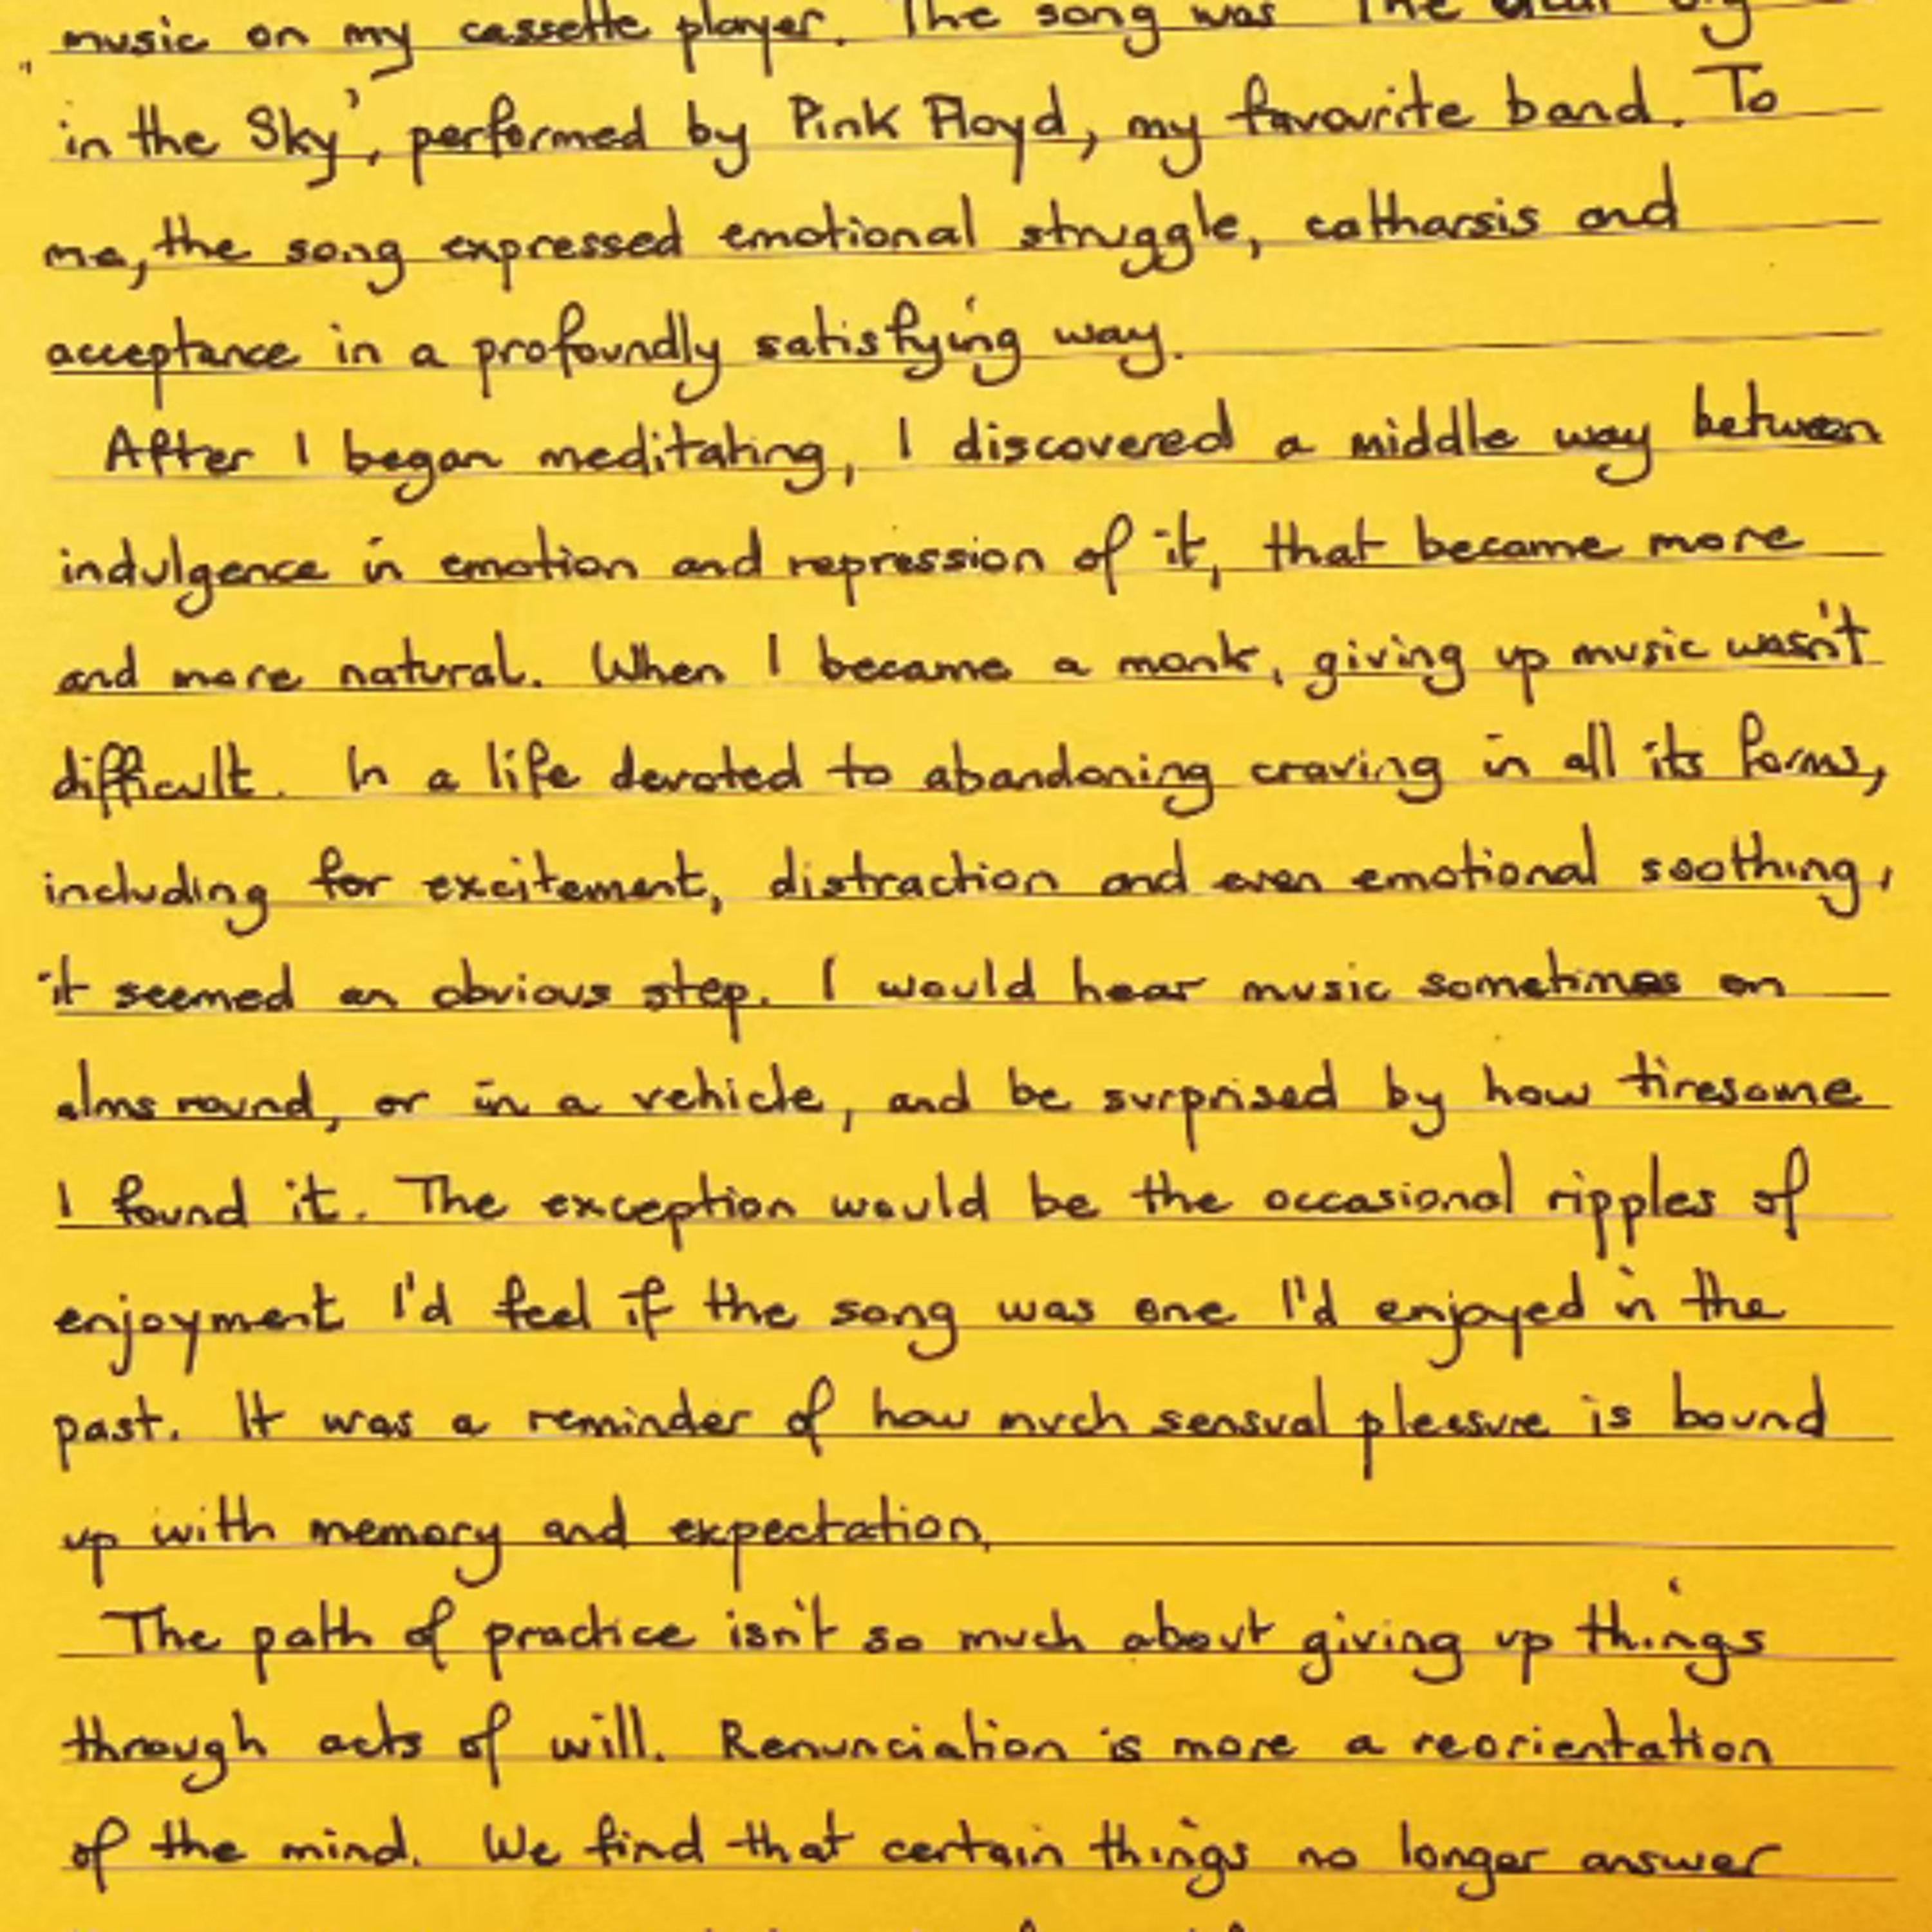 music on my cassette player. The song was 'The Great Gig
in the Sky', performed by Pink Floyd, my favourite band. To
me, the song expressed emotional struggle, catharsis and
acceptance in a profoundly satisfying way.
After I began meditating, I discovered a middle way between
indulgence in emotion and repression of it, that became more
and more natural. When I became a monk, giving up music wasn't
difficult. In a life devoted to abandoning craving in all its forms,
including for excitement, distraction and even emotional soothing,
it seemed an obvious step. I would hear music sometimes on
alms round, or in a vehicle, and be surprised by how tiresome
I found it. The exception would be the occasional ripples of
enjoyment I'd feel if the song was one I'd enjoyed in the
past. It was a reminder of how much sensual pleasure is bound
up with memory and expectation.
The path of practice isn't so much about giving up things
through acts of will. Renunciation is more a reorientation
of the mind. We find that certain things no longer answer